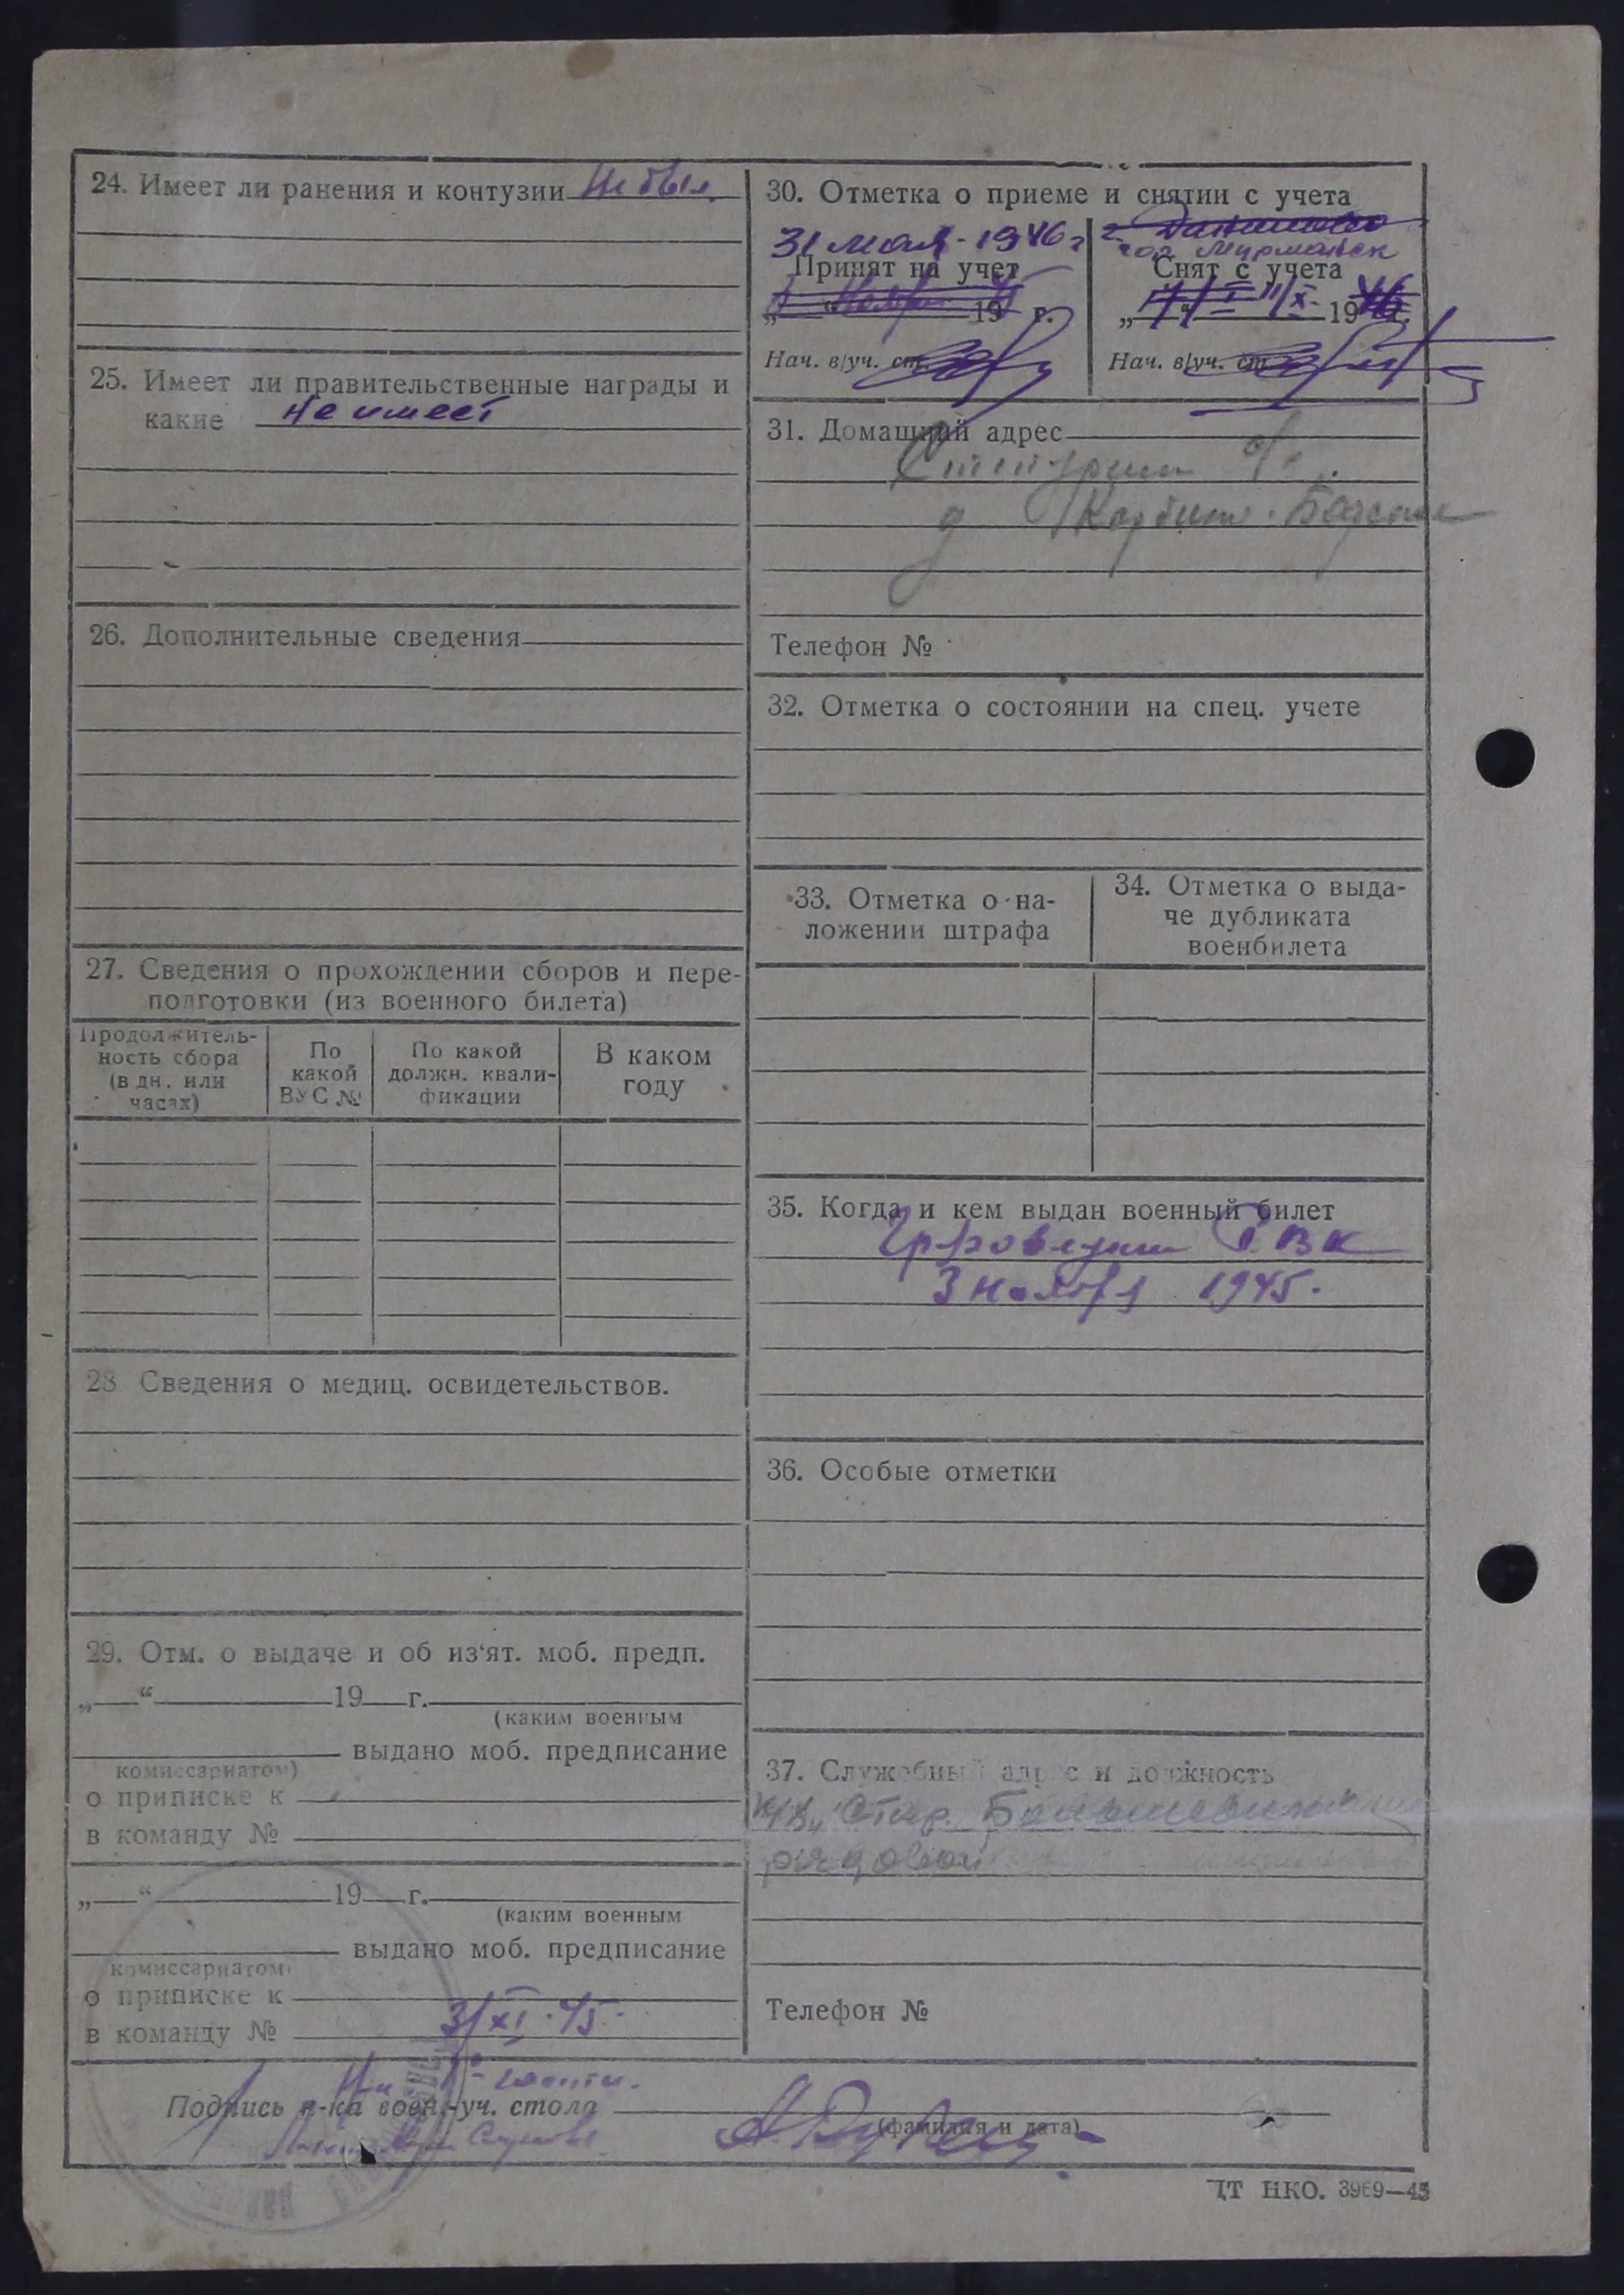 24. Имеет ли ранения и контузии Не был.
25. Имеет ли правительственные награды и
какие не имеет
26. Дополнительные сведения
27. Сведения о прохождении сборов и пере-
подготовки (из военного билета)
Продолжитель-
ность сбора
(в дн. или
часах)
По
какой
ВУС №
По какой
должн. квали-
фикации
В каком
году
28 Сведения о медиц. освидетельствов.
29. Отм. о выдаче и об из‘ят. моб. предп.
„ “ 19 г.
(каким военным
выдано моб. предписание
комиссариатом)
о приписке к
в команду №
„ “ 19 г.
(каким военным
выдано моб. предписание
комиссариатом)
о приписке к
в команду №
3/XI-45.
30. Отметка о приеме и снятии с учета
31 мая - 1946 г
Принят на учет
„ “ 19 г.
Нач. в/уч. ст.
гор Мурманск
Снят с учета
„ “ 19 г.
Нач. в/уч. ст
31. Домашний адрес
д
Телефон №
32. Отметка о состоянии на спец. учете
33. Отметка о на-
ложении штрафа
34. Отметка о выда-
че дубликата
военбилета
35. Когда и кем выдан военный билет
РВК
3 ноября 1945.
36. Особые отметки
37. Служебный адрес и должность
рядовой
Телефон №
Подпись н-ка воен.-уч. стола
(фамилия и дата)
ЦТ НКО. 3969—45